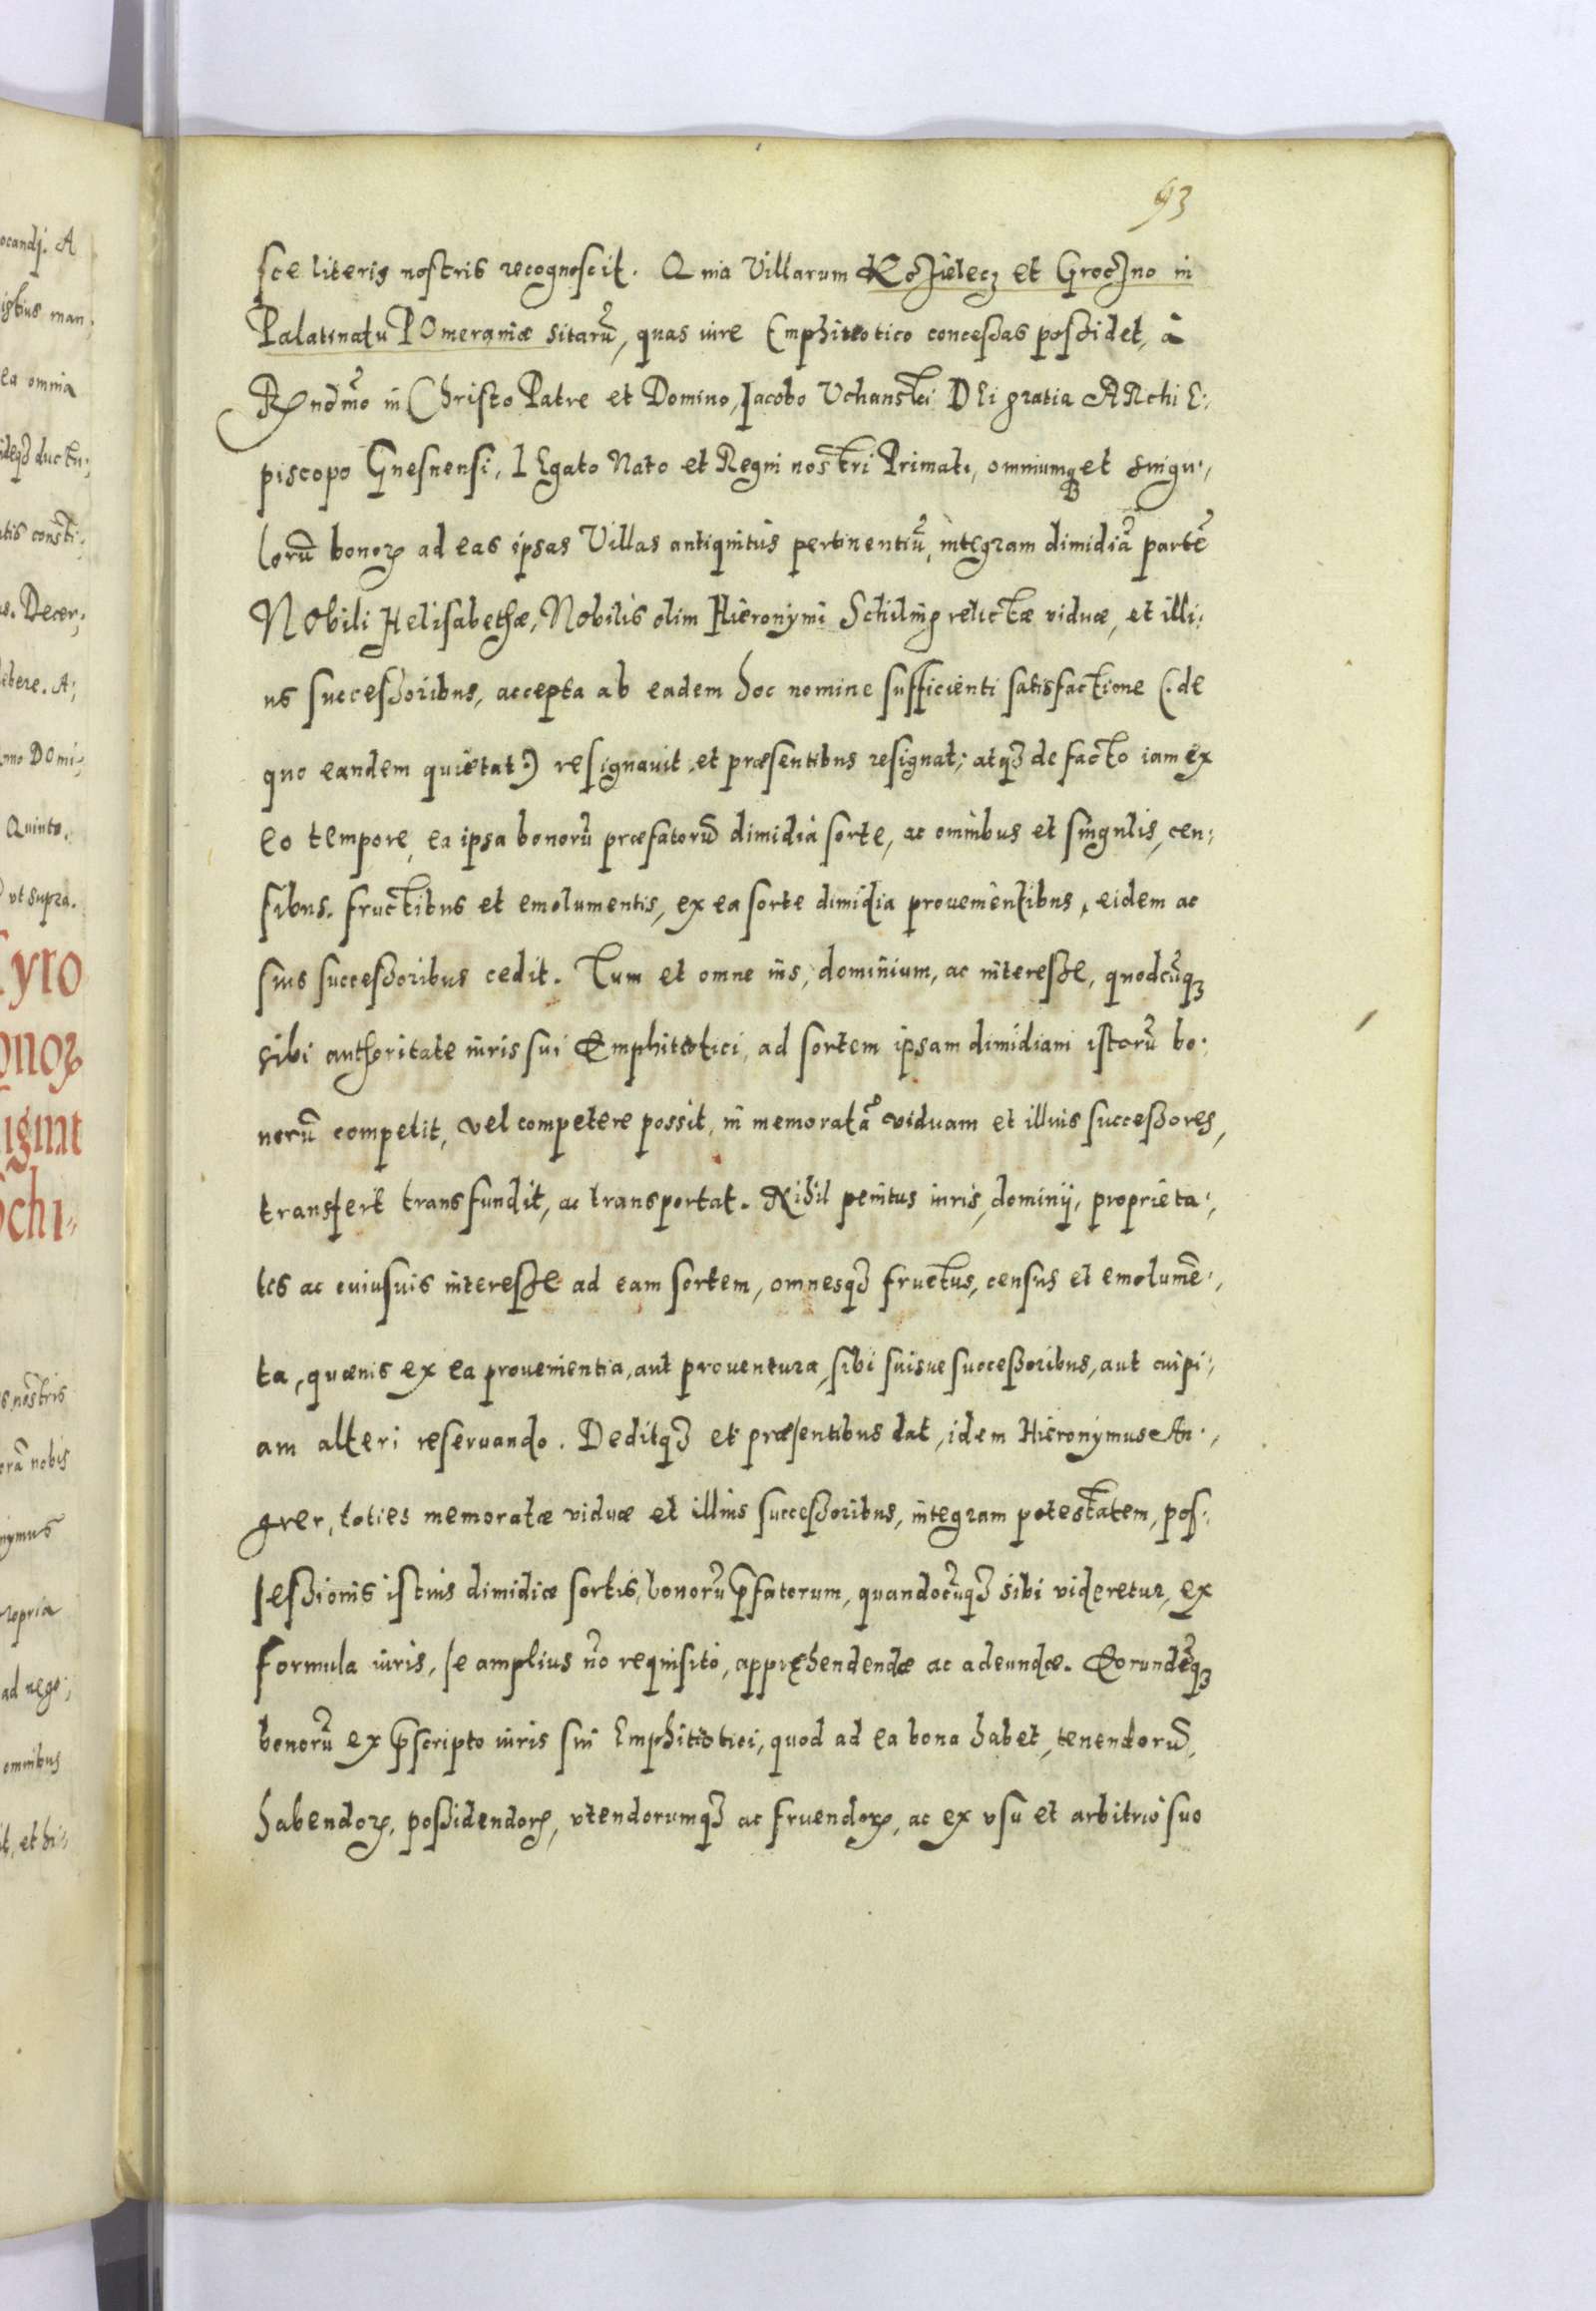 93
sce literis nostris recognoscit. Quia Villarum Kozielecz et Groczno in
Palatinatu POmeraniæ sitarũ, quas iure Emphiteotico conceſsas poſsidet, à
Rndmo in Christo Patre et Domino, Iacobo Vchanski DEi gratia ARchi E:,
piscopo Gnesnensi, LEgato Nato et Regni nostri Primate, omniumq̃ et singu:,
lorũ bonoꝝ ad eas ipsas Villas antiquitùs pertinentiũ, integram dimidiã partẽ
NObili Helisabethæ, Nobilis olim Hieronymi Schiling relictæ viduæ, et illi:,
us succeſsoribus, accepta ab eadem hoc nomine sufficienti satisfactione (:de
quo eandem quietat:) resignauit et præsentibus resignat; atqꝫ de facto iam ex
eo tempore, ea ipsa bonorũ præfatorũ dimidia sorte, ac omnibus et singulis, cen:,
sibus, fructibus et emolumentis, ex ea sorte dimidia prouenientibus, eidem ac
suis succeſsoribus cedit. Tum et omne ius, dominium, ac intereſse, quodcũqꝫ
sibi authoritate iuris sui Emphiteotici, ad sortem ipsam dimidiam istorũ bo:
norũ competit, vel competere possit, in memoratã viduam et illius succeſsores,
transfert transfundit, ac transportat. Nihil penitus iuris, dominij, proprieta:,
tis ac cuiusuis intereſse ad eam sortem, omnesqꝫ fructus, census et emolumẽ:,
ta, quæuis ex ea prouenientia, aut prouentura, sibi suisue succeſsoribus, aut cuipi:,
am alteri reseruando. Deditqꝫ et præsentibus dat, idem Hieronymus An:,
grer, toties memoratæ viduæ et illius succeſsoribus, integram potestatem, pos:,
seſsionis istius dimidiæ sortis, bonorũ p̃fatorum, quandocũqꝫ sibi videretur, ex
formula iuris, se amplius nõ requisito, apprehendendæ ac adeundæ. Eorundẽqꝫ
bonorũ ex p̃scripto iuris sui Emphiteotici, quod ad ea bona habet, tenendorũ,
habendoꝝ, poſsidendoꝝ, vtendorumqꝫ ac fruendoꝝ, ac ex vsu et arbitrio suo